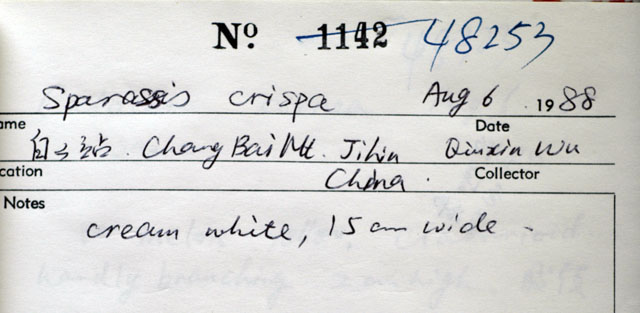 Nº 1142 48253
Sparassis crispa Aug 6 1988
ame Date
Chang Bai Mt. Jilin Qiuxin Wu
cation China. Collector
Notes
cream white, 15 cm wide